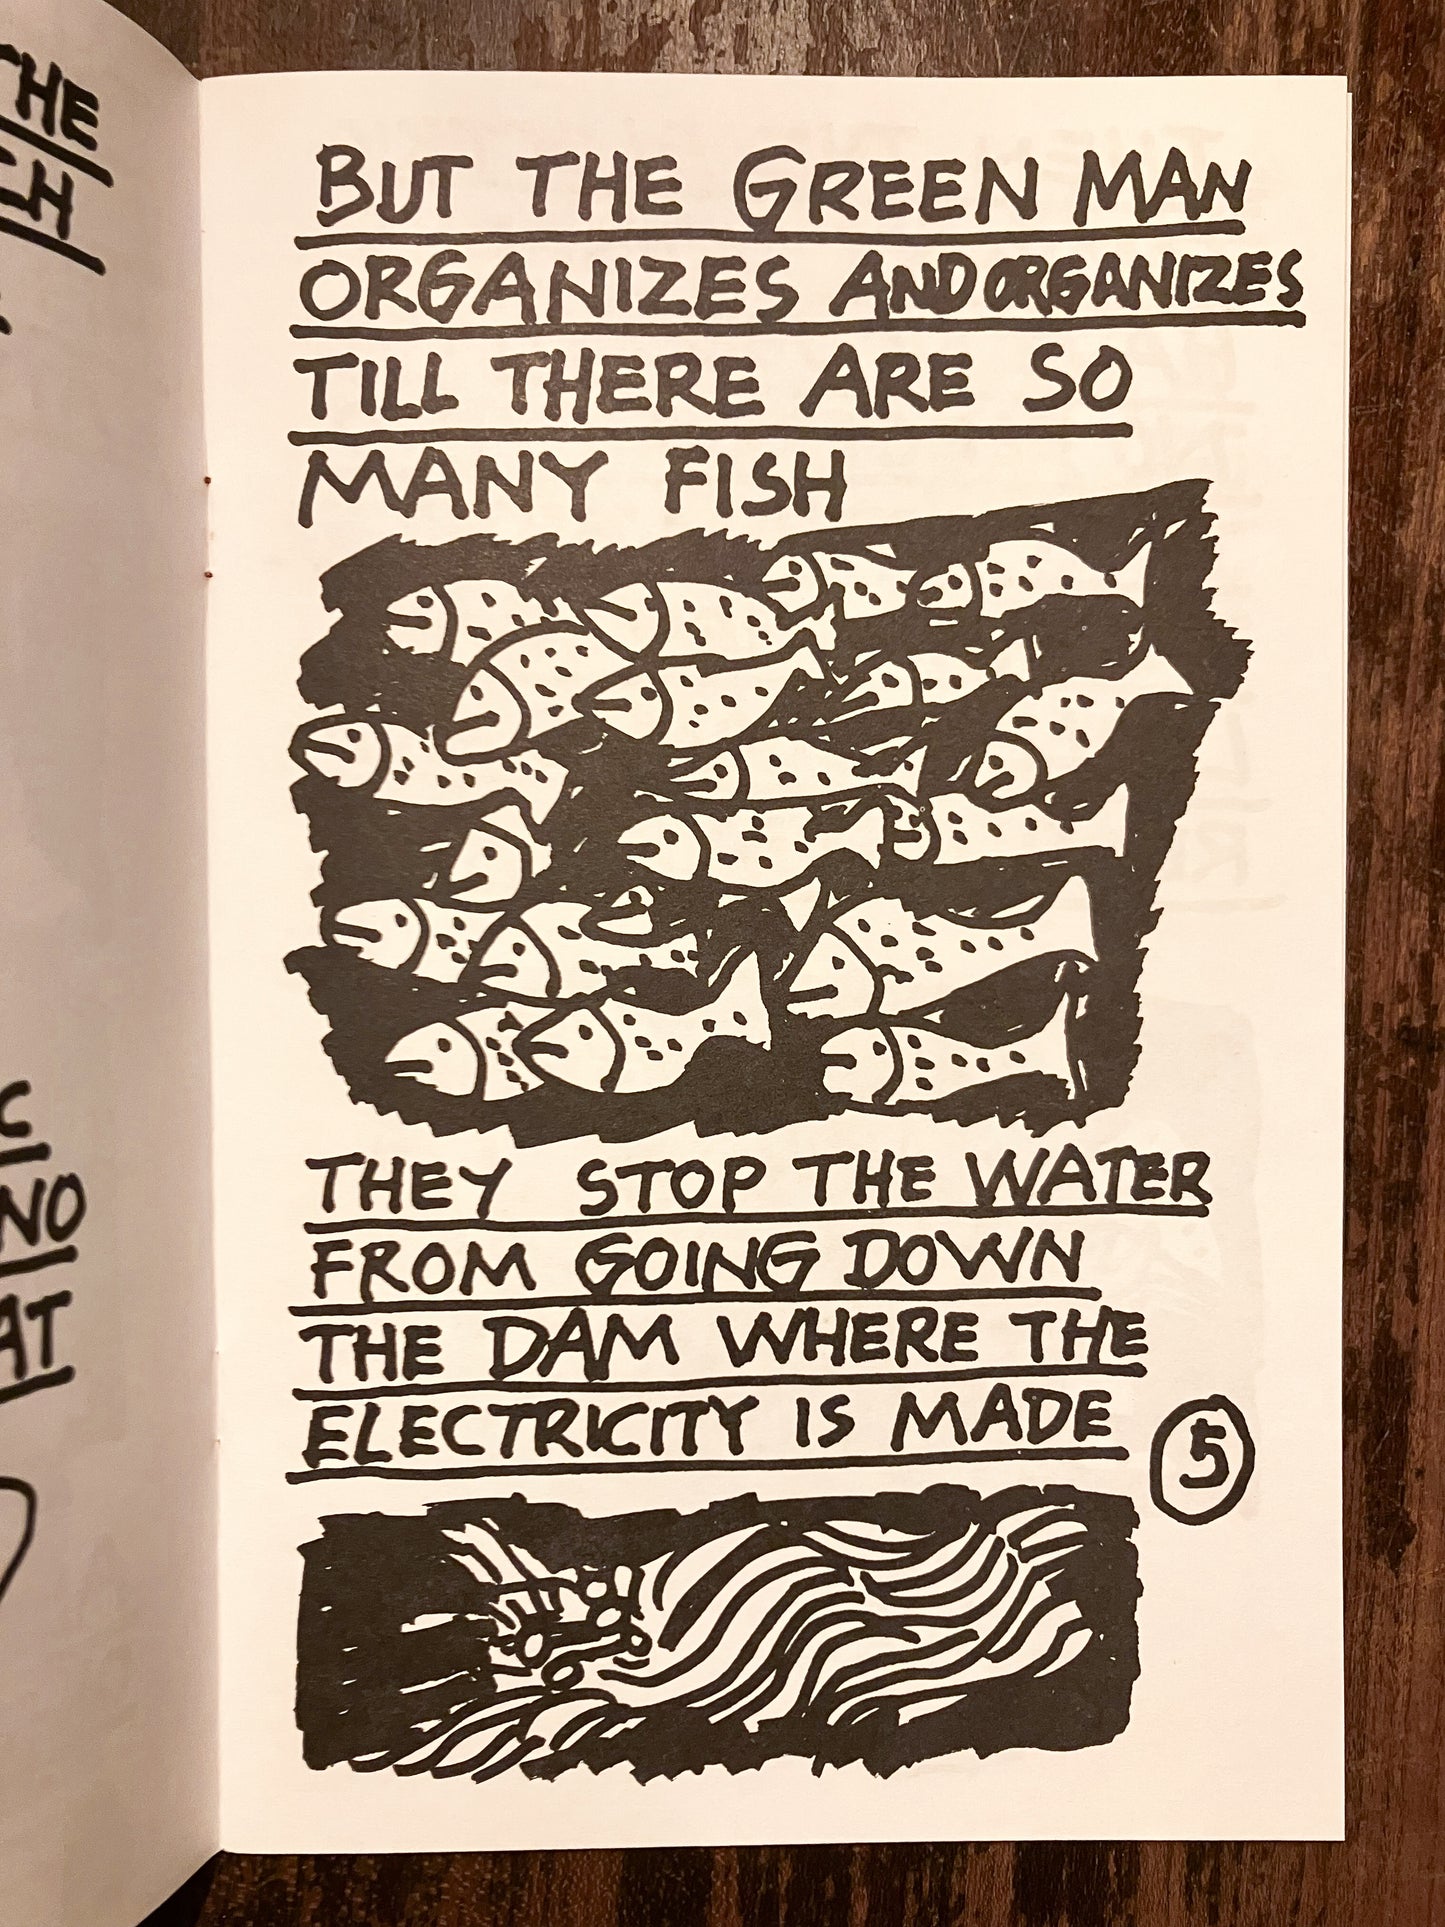 THE
CH
C
NO
AT
BUT THE GREEN MAN
ORGANIZES AND ORGANIZES
TILL THERE ARE SO
MANY FISH
THEY STOP THE WATER
FROM GOING DOWN
THE DAM WHERE THE
ELECTRICITY IS MADE
5